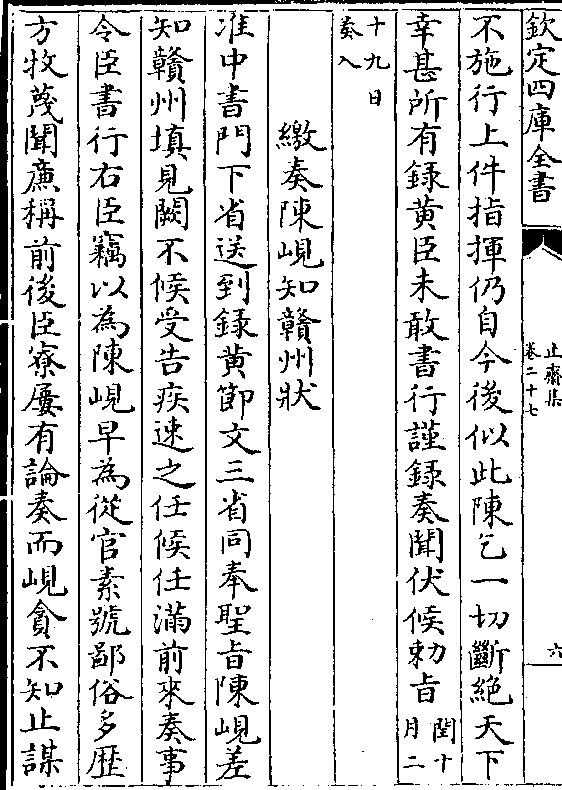 欽定四庫全書
止齋集
卷二十七
六
不施行上件指揮仍自今後似此陳乞一切斷絕天下
幸甚所有錄黃臣未敢書行謹錄奏聞伏候勅旨閏十月二
十九日奏入
繳奏陳峴知贛州狀
准中書門下省送到錄黃節文三省同奉聖旨陳峴差
知贛州填見闕不候受告疾速之任候任滿前來奏事
令臣書行右臣竊以為陳峴早為從官素號鄙俗多歴
方牧蔑聞亷稱前後臣寮屢有論奏而峴貪不知止謀